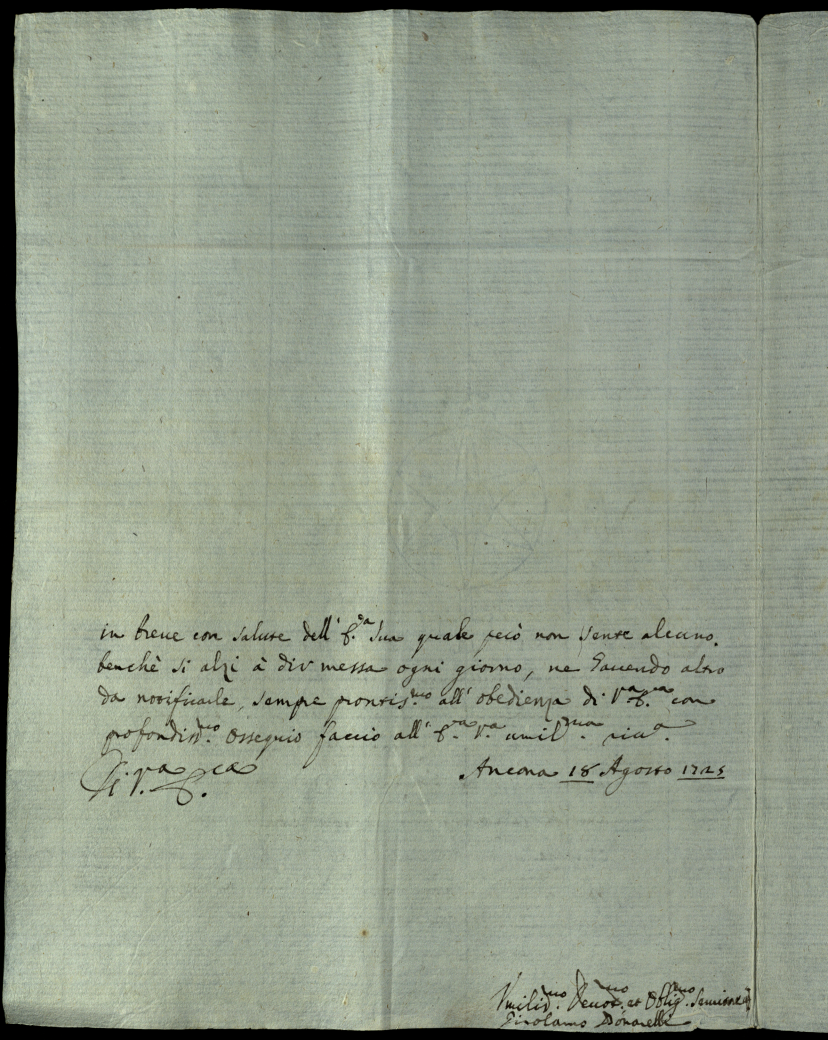 in breve con salute dell' E.za Sua quale però non sente alcuno
benchè si alzi à dir messa ogni giorno, ne havendo altro
da notificarle, sempre prontis.mo all' obedienza di V.a E.za con
profondiss.mo ossequio faccio all' E.za V.a umil.ma riv.a
Di V.a E.za
Ancona 18 Agosto 1725
Umilis.mo Devot.mo et Oblig.mo Servitore
Girolamo Donarelli